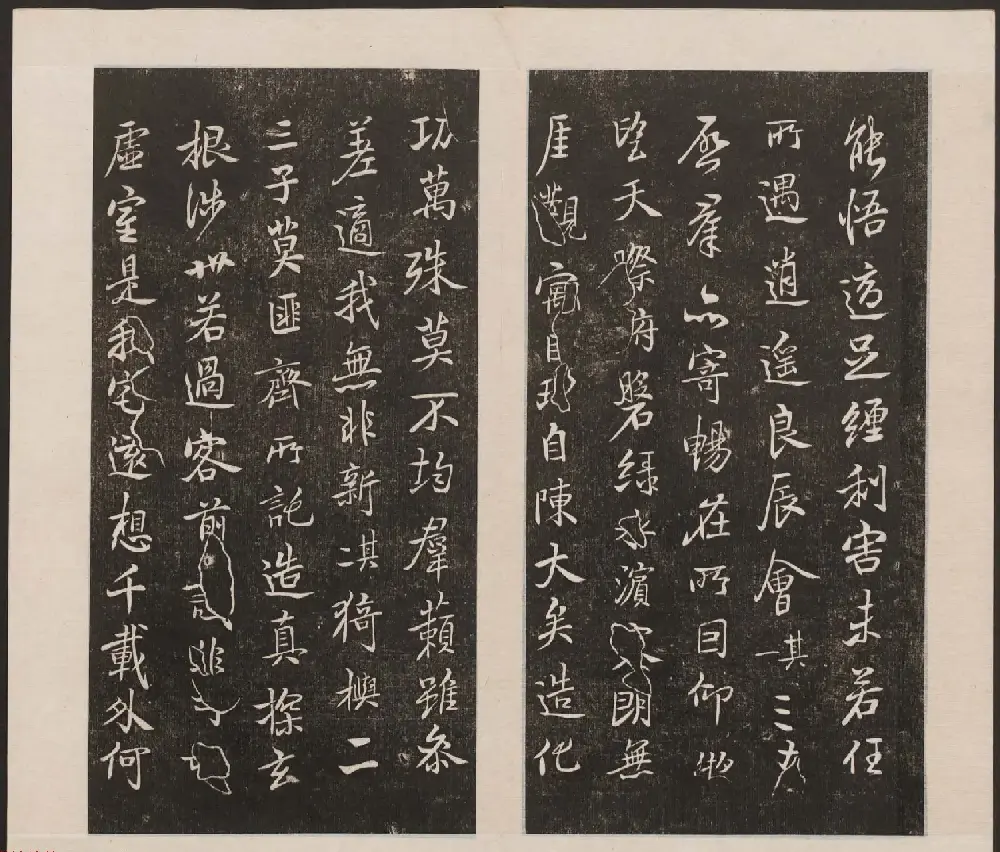 能悟適足纏利害未若任
所遇逍遙良辰會其一三春
啓羣品寄暢在所因仰
望天際府磐緑水濱寥朗無
厓觀寓目理自陳大矣造化
功萬殊莫不均羣籟雖叅
差適我無非新其二猗與二
三子莫匪齊所託造真探玄
根涉世若過客前識非所期
虛室是我宅遠想千載外何